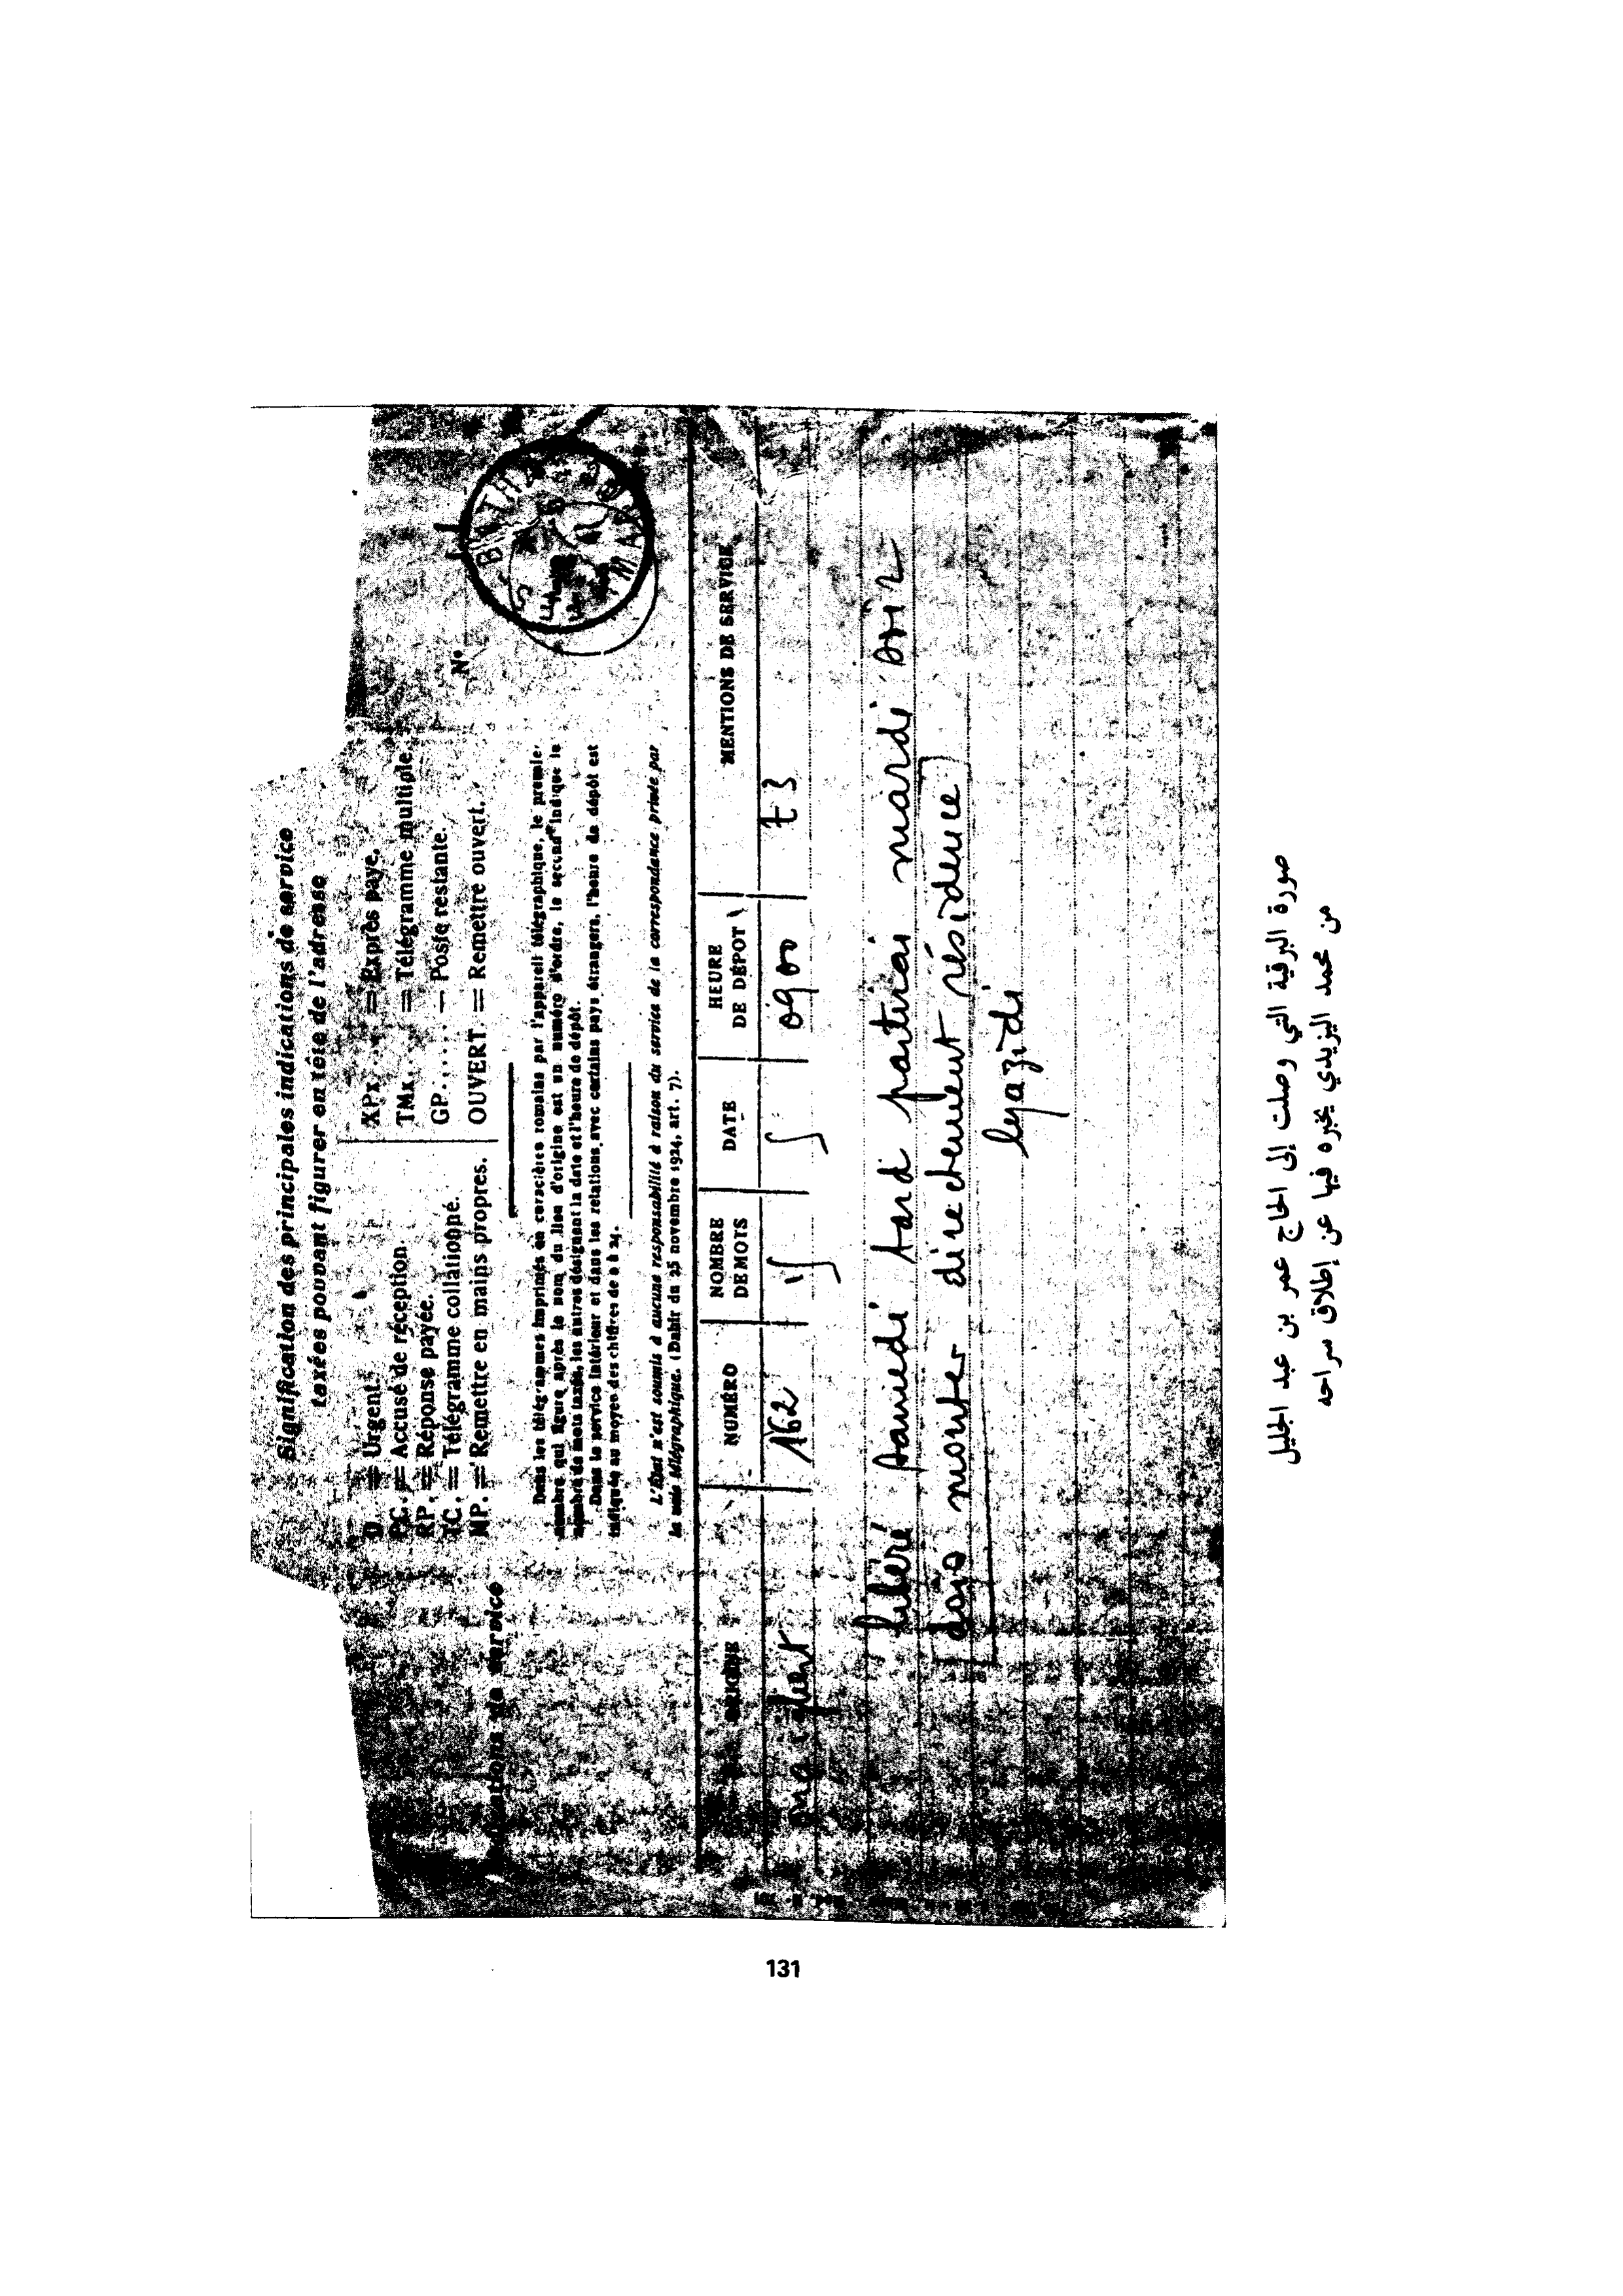 Signification des principales indications de service
taxées pouvant figurer en tête de l'adresse
D. = Urgent.
PC. = Accusé de réception.
RP. = Réponse payée.
TC. = Télégramme collationné.
MP. = Remettre en mains propres.
XPx... = Exprès payé.
TMx... = Télégramme multiple.
GP..... = Poste restante.
OUVERT = Remettre ouvert.
Indications de service
N°
Dans les télégrammes imprimés en caractères romains par l'appareil télégraphique, le premier
nombre qui figure après le nom du lieu d'origine est un numéro d'ordre, le second indique le
nombre de mots taxés, les autres désignent la date et l'heure de dépôt.
Dans le service intérieur et dans les relations avec certains pays étrangers, l'heure de dépôt est
indiquée au moyen des chiffres de 0 à 24.
L'État n'est soumis à aucune responsabilité à raison du service de la correspondance privée par
la voie télégraphique. (Dahir du 25 novembre 1924, art. 7).
ORIGINE NUMÉRO NOMBRE DE MOTS DATE HEURE DE DÉPOT MENTIONS DE SERVICE
162 0900
libéré samedi tard partirai mardi soir
dois monter directement résidence
lyazidi
صورة البرقية التي وصلت إلى الحاج عمر بن عبد الجليل
من محمد اليزيدي يخبره فيها عن إطلاق سراحه
131